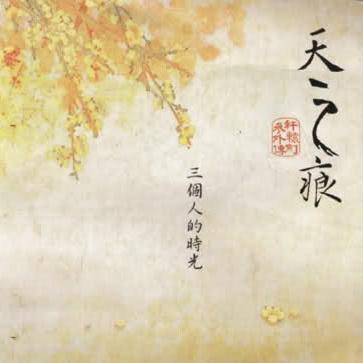 天之痕
軒轅劍外傳
三個人的時光